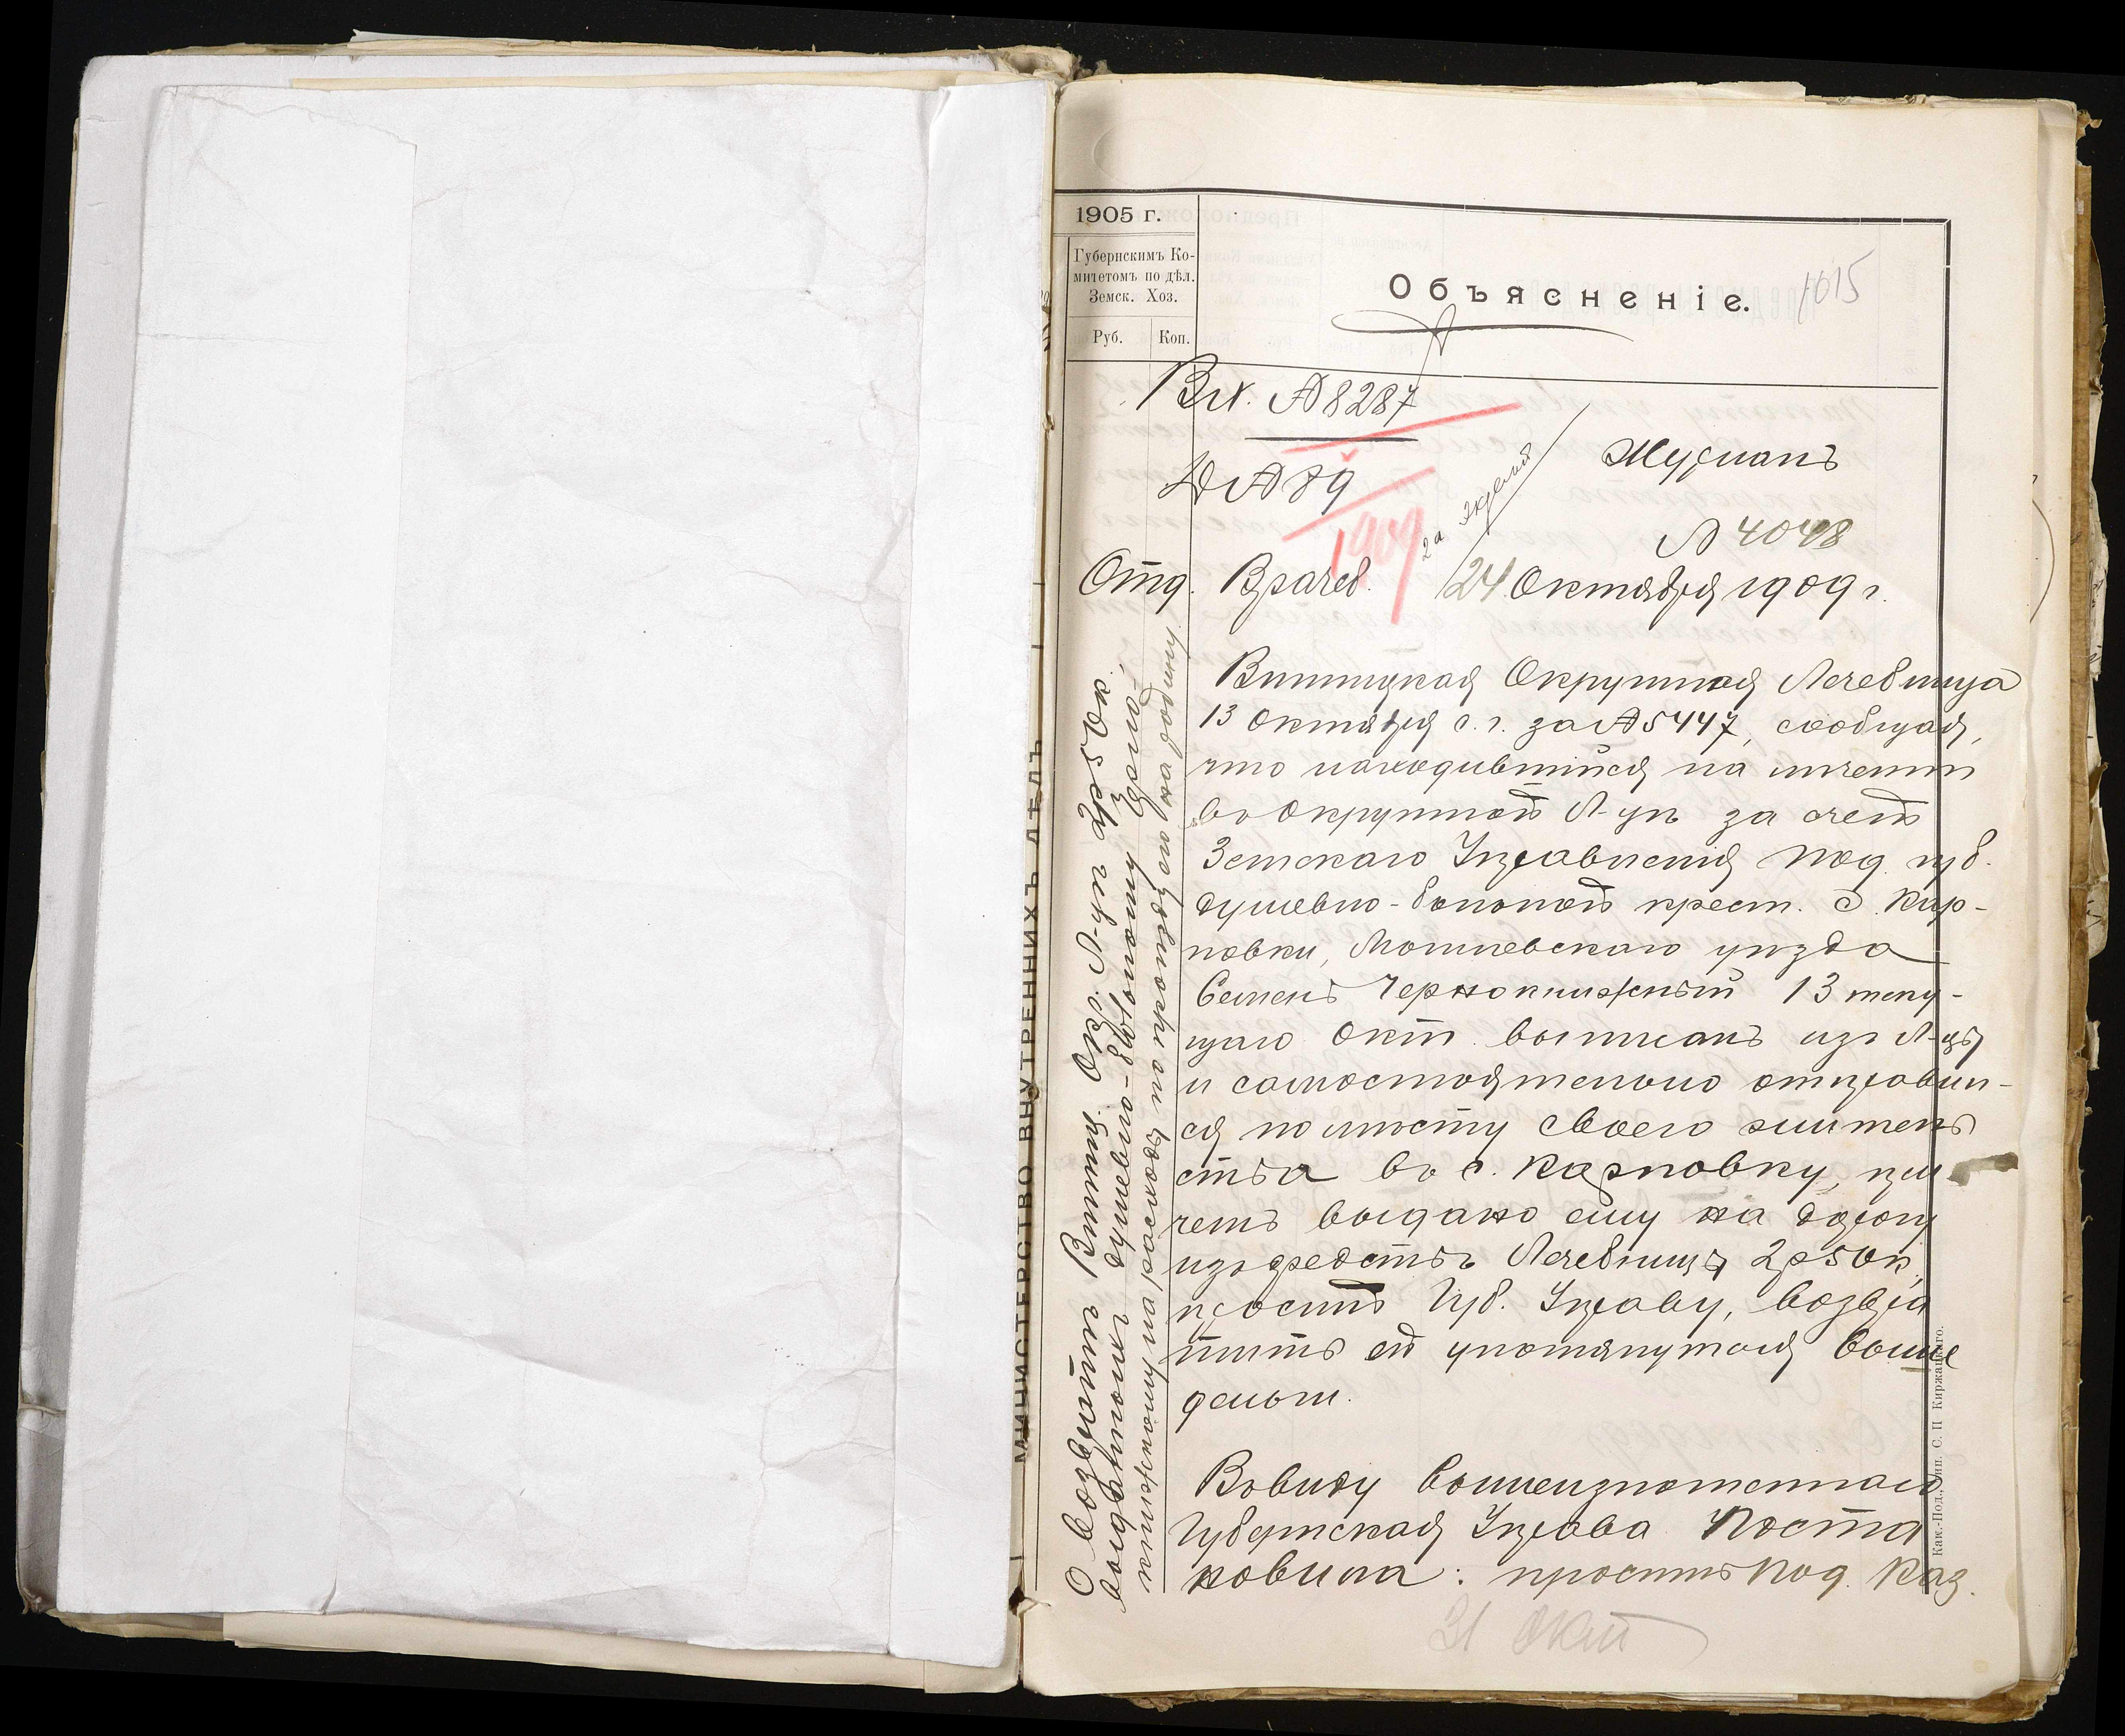 1905 г.
Губернскимъ Ко-
митетомъ по дѣл.
Земск. Хоз.
Руб. Коп.
Объясненіе.
1015
Вх. № 8287
Д № 89
1909
2а экземпл
Журналъ
№ 4048
Отд. Врачеб. 24 Октября 1909 г.
О возвратѣ Винниц. Окр. Л-цѣ 2р 50к.
выданныхъ душевно-больному Черно-
книжному на расходы по препровожденію на родину
Винницкая Окружная Лечебница
13 Октября с. г. за № 5447, сообщая,
что находившійся на леченіи
въ Окружной Л-цѣ за счетъ
Земскаго Управленія Под. губ.
душевно-больной крест. с. Кар-
повки, Могилевскаго уѣзда
Семенъ Чернокнижный 13 теку-
щаго Окт. выписанъ изъ Л-цы
и самостоятельно отправил-
ся по мѣсту своего житель
ства въ с. Карповку, при
чемъ выдано ему на дорогу
изъ средствъ Лечебницы 2р 50к,
проситъ Губ. Управу, возвра
тить ей упомянутыя выше
деньги.
Ввиду вышеизложеннаго
Губернская Управа Поста
новила: просить Под. Каз.
31 Окт
МИНИСТЕРСТВО ВНУТРЕННИХЪ ДѢЛЪ
Кам.-Под., Тип. С. П Киржацкаго.